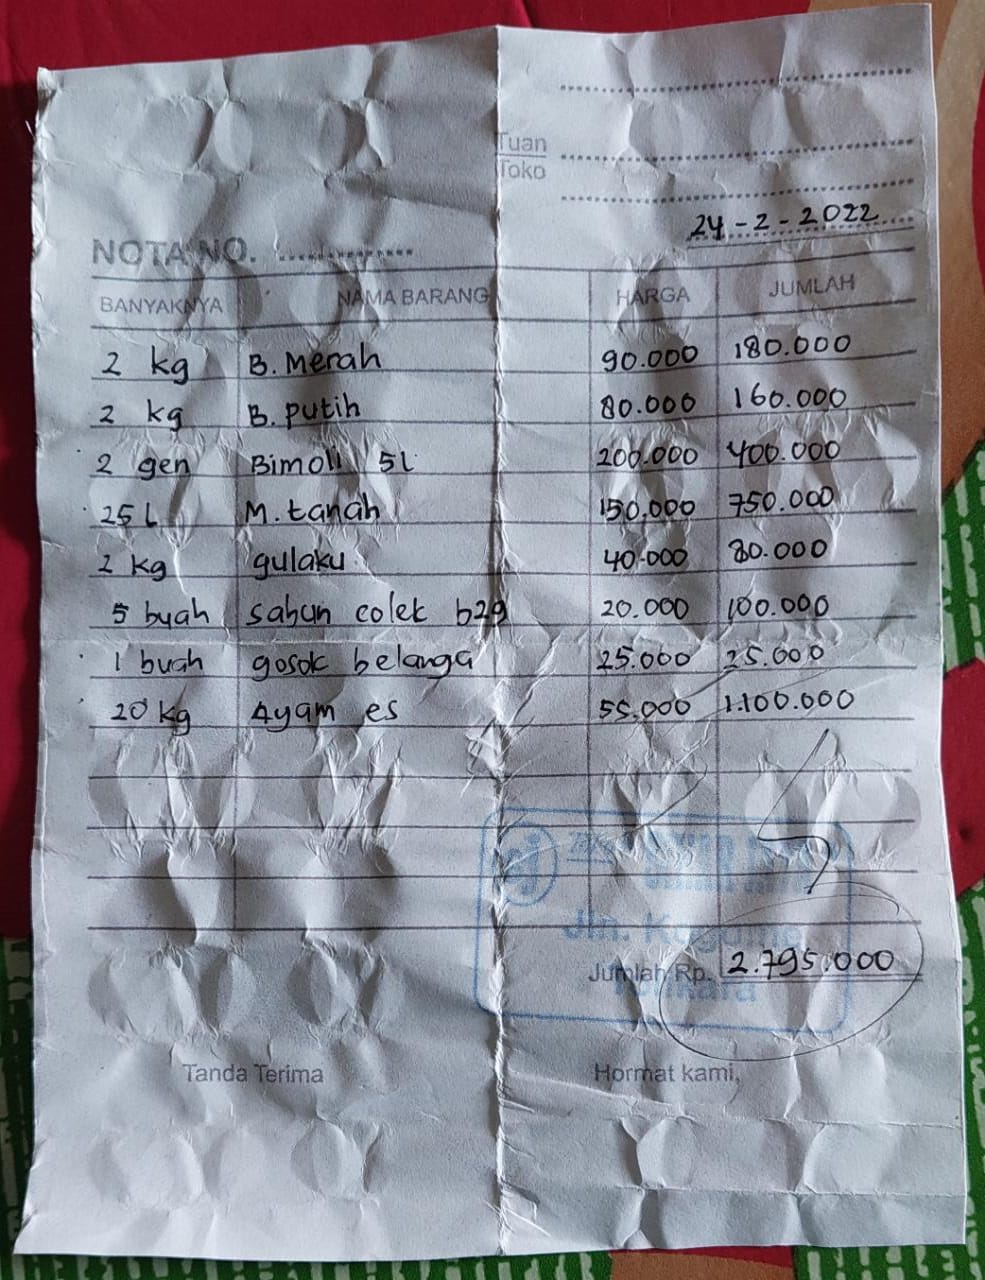 Tuan
Toko
24-2-2022
NOTA NO.
BANYAKNYA NAMA BARANG HARGA JUMLAH
2 kg B. Merah 90.000 180.000
2 kg B. putih 80.000 160.000
2 gen Bimoli 5L 200.000 400.000
25 L M. tanah 150.000 750.000
2 kg gulaku 40.000 80.000
5 buah sabun colek b29 20.000 100.000
1 buah gosok belanga 25.000 25.000
20 kg Ayam es 55.000 1.100.000
Jln.
Jumlah Rp. 2.795.000
Tanda Terima Hormat kami,